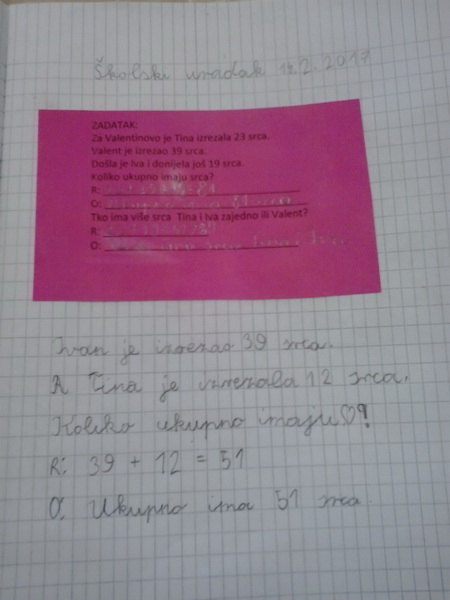 Školski uradak 14.2.2017
ZADATAK:
Za Valentinovo je Tina izrezala 23 srca.
Valent je izrezao 39 srca.
Došla je Iva i donijela još 19 srca.
Koliko ukupno imaju srca?
R:
O: 81
Tko ima više srca Tina i Iva zajedno ili Valent?
R:
O: ima srca Tina i Iva
Ivan je izrezao 39 srca.
A Tina je izrezala 12 srca.
Koliko ukupno imaju ♡?
R: 39 + 12 = 51
O: Ukupno ima 51 srca